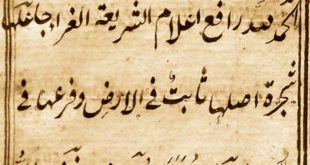 الحمد لله رافع اعلام الشريعة الغرا جاعلها
شجرة اصلها ثابت في الارض وفرعها في